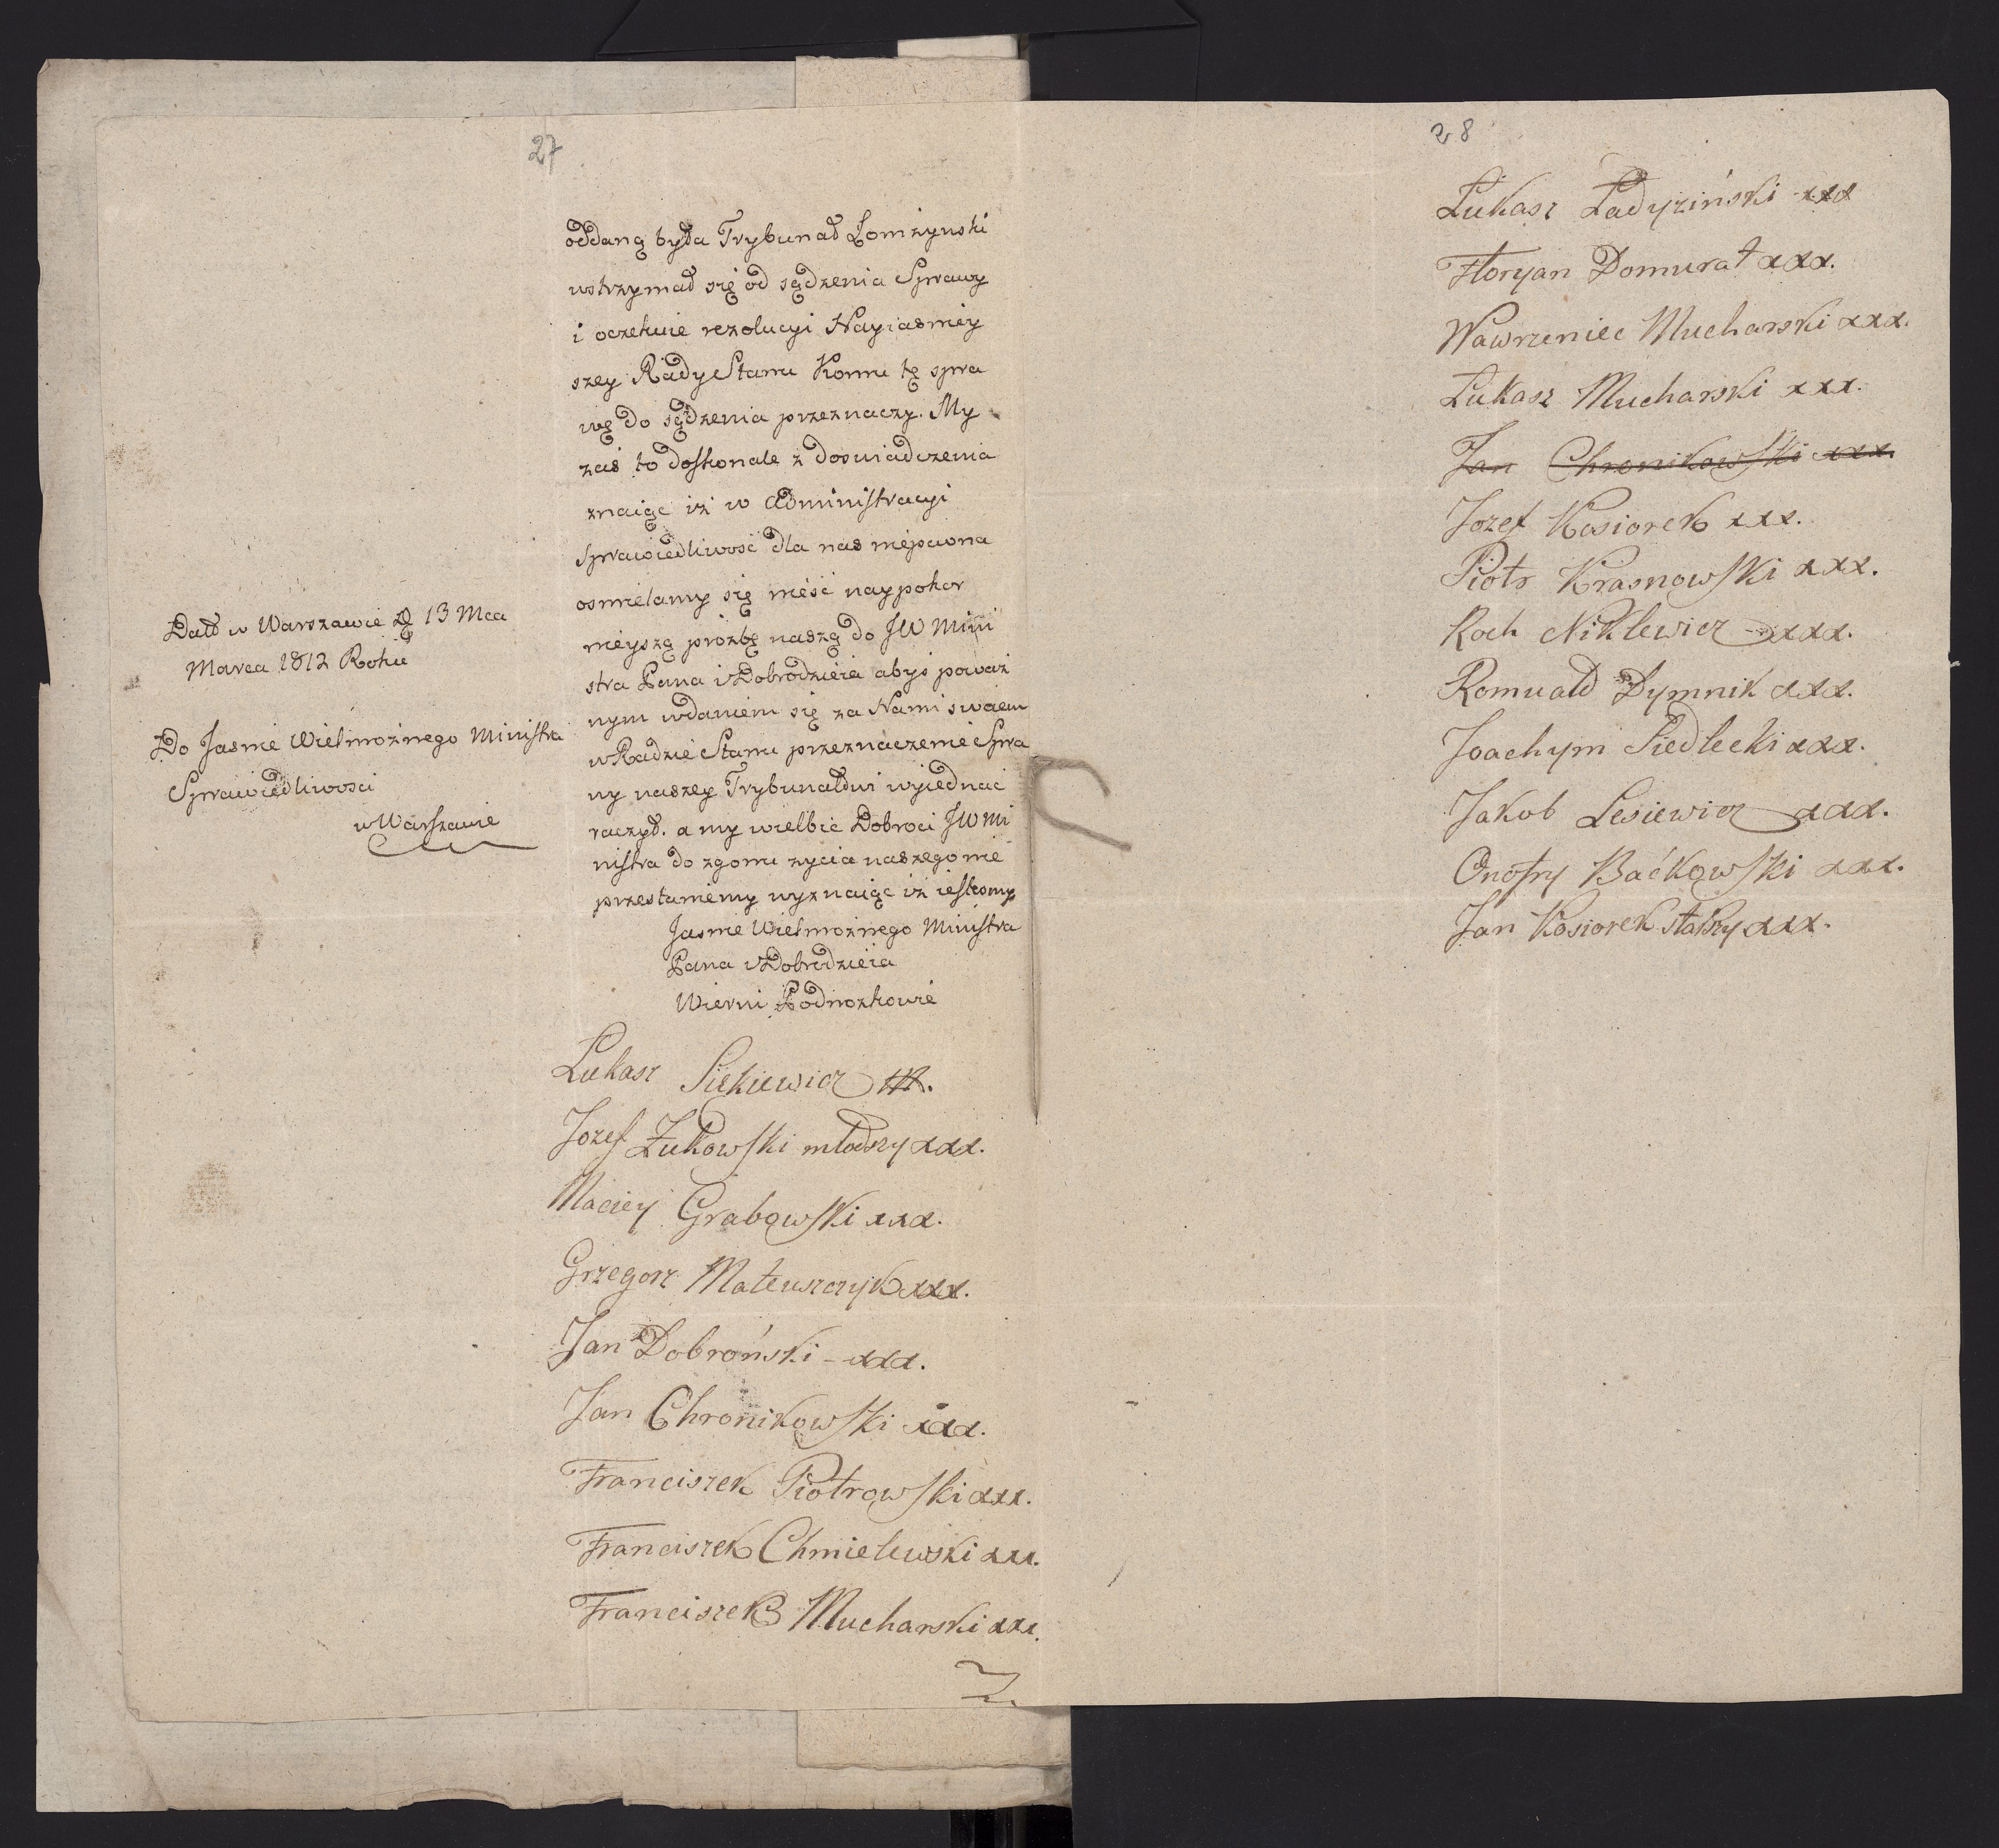 27
oddaną była Trybunał Łomżynski
wstrzymał się od sądzenia Sprawy
i oczekuie rezolucyi Nayiasniey
szey Rady Stanu Komu tę spra
wę do sądzenia przeznaczy. My
zaś to doskonale z doswiadczenia
znaiąc iż w Administracyi
Sprawiedliwość dla nas niepewna
osmielamy się nieść naypokor
nieyszą prozbę naszą do JW Mini
stra Pana i Dobrodzieia abyś poważ
nym wdaniem się za Nami swoiem
w Radzie Stanu przeznaczenie Spra
wy naszey Trybunałowi wyiednać
raczył. a my wielbić Dobroci JW Mi
nistra do zgonu życia naszego nie
przestaniemy wyznaiąc iż iestesmy
Jasnie Wielmożnego Ministra
Pana i Dobrodzieia
Wierni Podnozkowie
Datt w Warszawie D 13 Mca
Marca 1812 Roku
Do Jasnie Wielmożnego Ministra
Sprawiedliwosci
w Warszawie
Łukasz Siekiewicz xxx.
Jozef Żukowski młodszy xxx.
Maciey Grabowski xxx.
Grzegorz Mateuszczyk xxx.
Jan Dobroński - xxx.
Jan Chronikowski xxx.
Franciszek Piotrowski xxx.
Franciszek Chmielewski xxx.
Franciszek Mucharski xxx.
28
Łukasz Ładyziński xxx
Floryan Domurat xxx.
Wawrzeniec Mucharski xxx.
Łukasz Mucharski xxx.
Jan Chronikowski xxx.
Jozef Kosiorek xxx.
Piotr Krasnowski xxx.
Roch Niklewicz - xxx.
Romuald Dymnik xxx.
Joachym Siedlecki xxx.
Jakob Lesiewicz xxx.
Onofry Baćkowski xxx.
Jan Kosiorek starszy xxx.